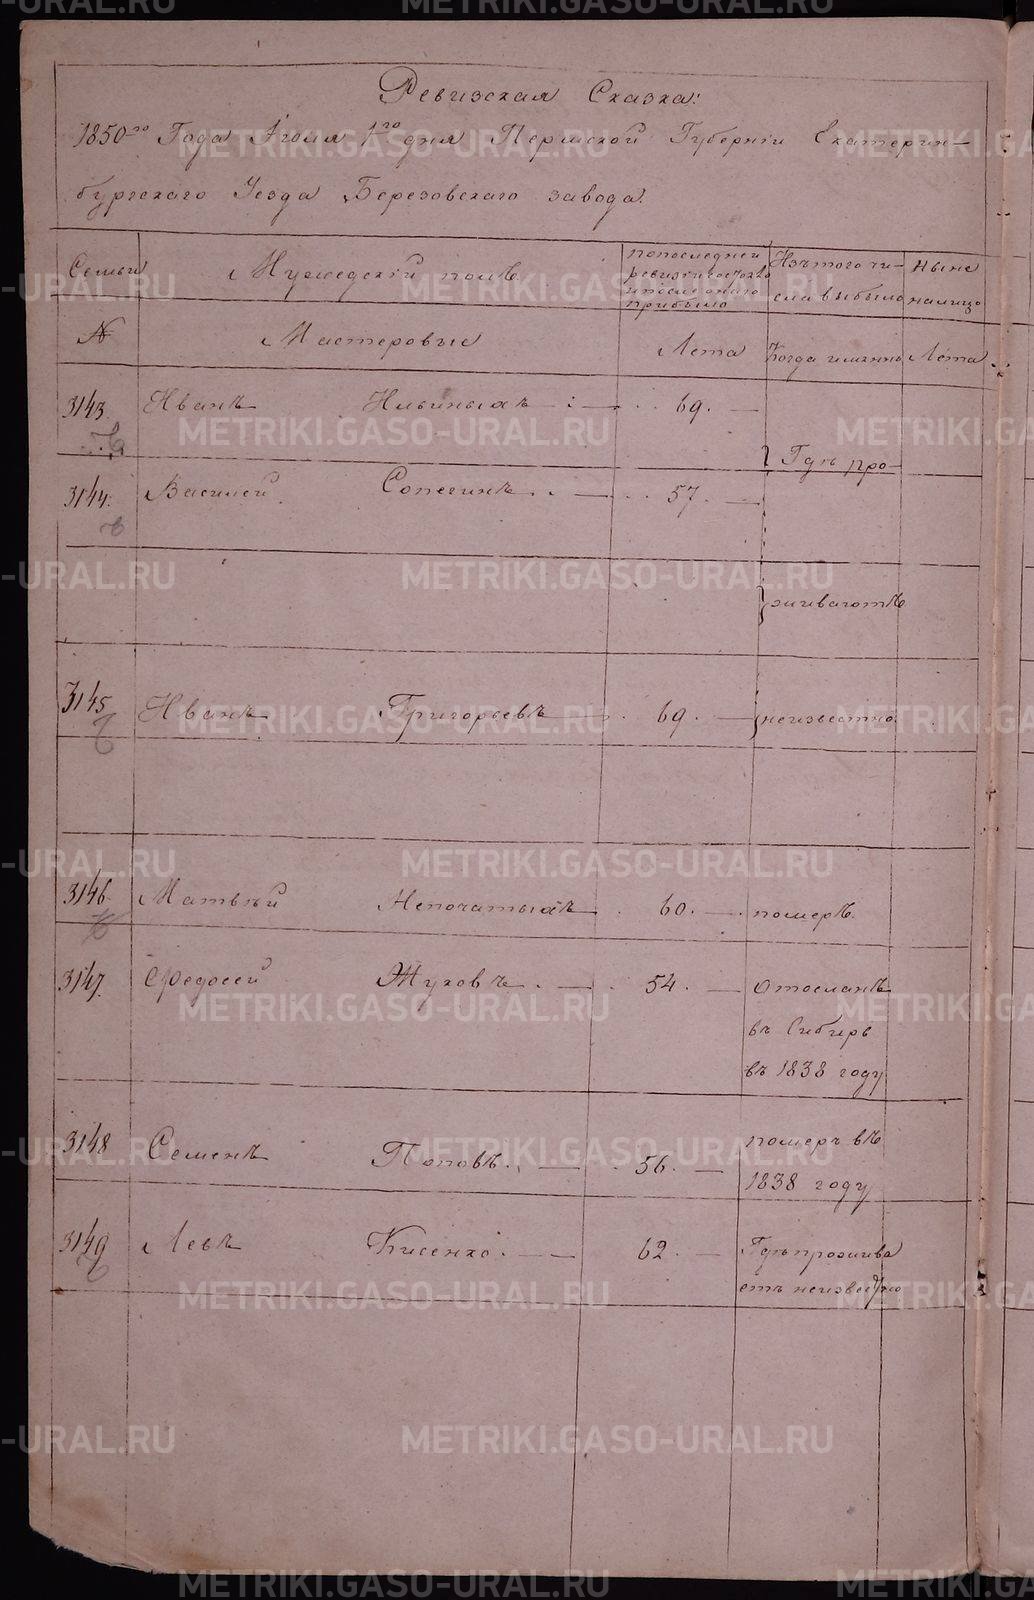 Ревизская Сказка:
1850-го Года Іюля 1го дня Пермской Губерніи Екатерин-
бургскаго Уезда Березовскаго завода.
Семьи Мужедский полъ по последней ревизіи состояло и после онаго прибыло Изъ того чи-сла выбыло Ныне налицо
№ Мастеровые Лета Когда именно Лета
3143. Иванъ Ильиныхъ 69.
3144. Василей Сопегинъ 57. Гдъ про-
живаютъ
3145 Иванъ Григорьевъ 69. неизвестно.
3146. Матвъй Непочатыхъ 60. померъ.
3147. Федосей Жуковъ 54. Отосланъ
въ Сибирь
въ 1838 году
3148 Семенъ Поповъ. 56. померъ въ
1838 году
3149 Левъ Кисенко. 62. Гдъ прожива
етъ неизвестно
METRIKI.GASO-URAL.RU